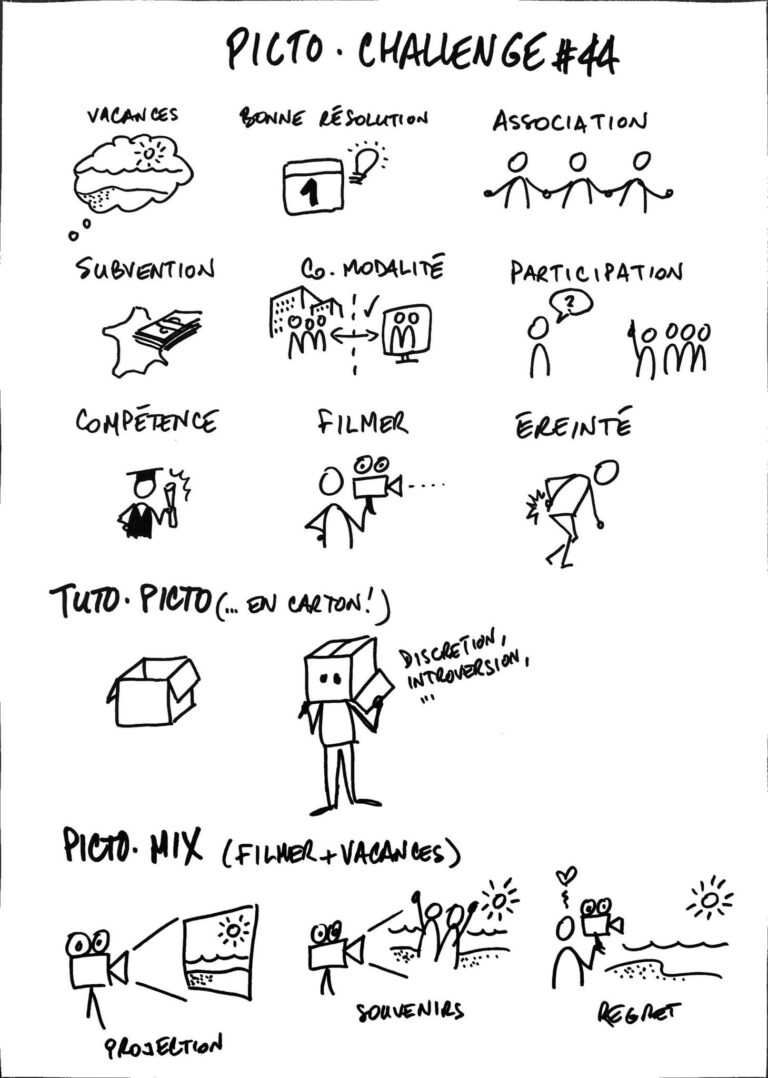 PICTO. CHALLENGE #44
VACANCES
BONNE RÉSOLUTION
ASSOCIATION
1
SUBVENTION
CO. MODALITÉ
PARTICIPATION
?
COMPÉTENCE
FILMER
ÉREINTÉ
TUTO. PICTO (... EN CARTON!)
DISCRETION,
INTROVERSION,
...
PICTO. MIX (FILMER + VACANCES)
PROJECTION
SOUVENIRS
REGRET